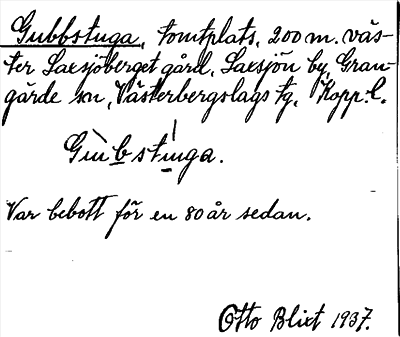 Gubbstuga, tomtplats, 200 m. väs-
ter Saxsjöberget gård, Saxsjön by, Gran-
gärde sn, Västerbergslags tg, Kopp. l.
Gùbstúnga.
Var bebott för en 80 år sedan.
Otto Blixt 1937.